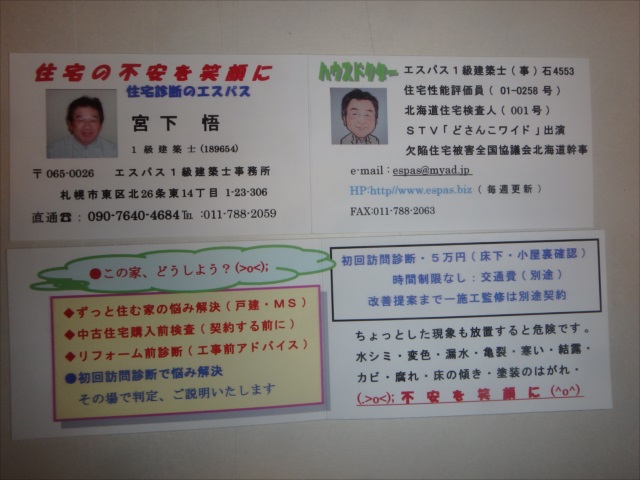 住宅の不安を笑顔に
住宅診断のエスパス
宮下 悟
1級建築士(189654)
〒065-0026 エスパス1級建築士事務所
札幌市東区北26条東14丁目 1-23-306
直通☎:090-7640-4684 ℡:011-788-2059
ハウスドクター エスパス1級建築士(事)石4553
住宅性能評価員(01-0258号)
北海道住宅検査人(001号)
STV「どさんこワイド」出演
欠陥住宅被害全国協議会北海道幹事
e-mail:espas@myad.jp
HP:http//www.espas.biz(毎週更新)
FAX:011-788-2063
●この家、どうしよう?(>o<);
◆ずっと住む家の悩み解決(戸建・MS)
◆中古住宅購入前検査(契約する前に)
◆リフォーム前診断(工事前アドバイス)
●初回訪問診断で悩み解決
その場で判定、ご説明いたします
初回訪問診断・5万円(床下・小屋裏確認)
時間制限なし:交通費(別途)
改善提案まで―施工監修は別途契約
ちょっとした現象も放置すると危険です。
水シミ・変色・漏水・亀裂・寒い・結露・
カビ・腐れ・床の傾き・塗装のはがれ・
(.>o<);不安を笑顔に(^o^)